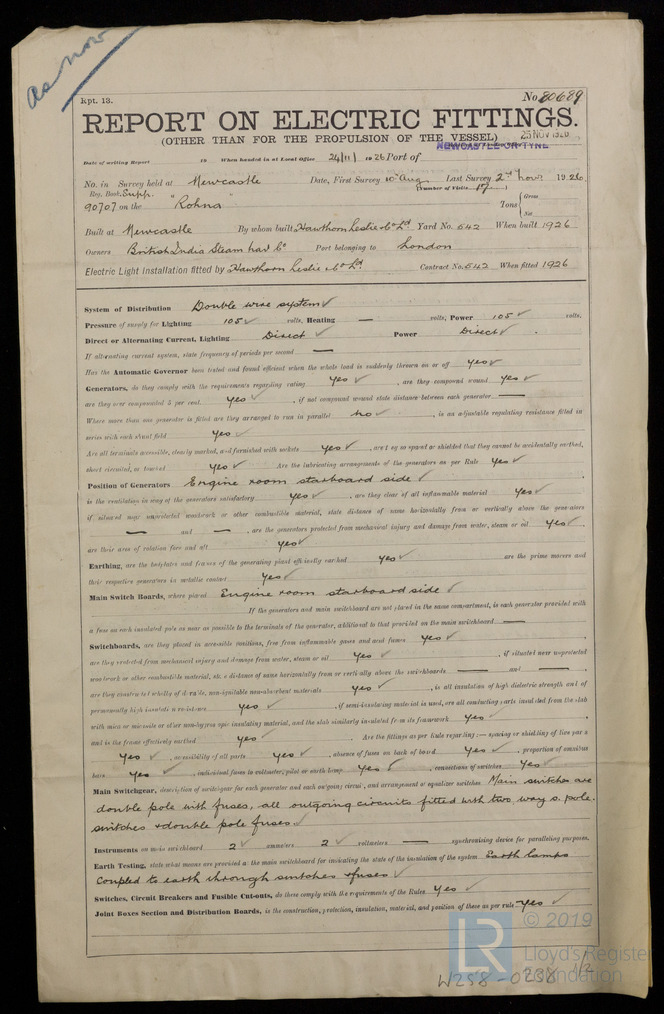 as now
Rpt. 13.
No 80689
REPORT ON ELECTRIC FITTINGS.
(OTHER THAN FOR THE PROPULSION OF THE VESSEL)
25 NOV 1926
NEWCASTLE-ON-TYNE
Date of writing Report 19 When handed in at Local Office 24/11/1926 Port of
No. in Survey held at Newcastle Date, First Survey 10th Aug Last Survey 2nd Novr 1926
Reg. Book. Supp. (Number of Visits 17)
90707 on the "Rohna" Tons { Gross Net
Built at Newcastle By whom built Hawthorn Leslie & Co Ld Yard No. 542 When built 1926
Owners British India Steam Nav Co Port belonging to London
Electric Light Installation fitted by Hawthorn Leslie & Co Ld Contract No. 542 When fitted 1926
System of Distribution Double wire system ✓
Pressure of supply for Lighting 105 ✓ volts, Heating — volts, Power 105 ✓ volts.
Direct or Alternating Current, Lighting Direct ✓ Power Direct ✓
If alternating current system, state frequency of periods per second —
Has the Automatic Governor been tested and found efficient when the whole load is suddenly thrown on or off yes ✓
Generators, do they comply with the requirements regarding rating yes ✓, are they compound wound yes ✓
are they over compounded 5 per cent. yes ✓, if not compound wound state distance between each generator —
Where more than one generator is fitted are they arranged to run in parallel no ✓, is an adjustable regulating resistance fitted in
series with each shunt field yes ✓
Are all terminals accessible, clearly marked, and furnished with sockets yes ✓, are they so spaced or shielded that they cannot be accidentally earthed,
short circuited, or touched yes ✓ Are the lubricating arrangements of the generators as per Rule yes ✓
Position of Generators Engine room starboard side ✓
is the ventilation in way of the generators satisfactory yes ✓, are they clear of all inflammable material yes ✓
if situated near unprotected woodwork or other combustible material, state distance of same horizontally from or vertically above the generators
— and —, are the generators protected from mechanical injury and damage from water, steam or oil yes ✓
are their axes of rotation fore and aft yes ✓
Earthing, are the bedplates and frames of the generating plant efficiently earthed yes ✓ are the prime movers and
their respective generators in metallic contact yes ✓
Main Switch Boards, where placed Engine room starboard side ✓
If the generators and main switchboard are not placed in the same compartment, is each generator provided with
a fuse on each insulated pole as near as possible to the terminals of the generator, additional to that provided on the main switchboard —
Switchboards, are they placed in accessible positions, free from inflammable gases and acid fumes yes ✓
are they protected from mechanical injury and damage from water, steam or oil yes ✓, if situated near unprotected
woodwork or other combustible material, state distance of same horizontally from or vertically above the switchboards — and —
are they constructed wholly of durable, non-ignitable non-absorbent materials yes ✓, is all insulation of high dielectric strength and of
permanently high insulation resistance yes ✓, if semi-insulating material is used, are all conducting parts insulated from the slab
with mica or micanite or other non-hygroscopic insulating material, and the slab similarly insulated from its framework yes ✓
and is the frame effectively earthed yes ✓ Are the fittings as per Rule regarding:— spacing or shielding of live parts
yes ✓, accessibility of all parts yes ✓, absence of fuses on back of board yes ✓, proportion of omnibus
bars yes ✓, individual fuses to voltmeter, pilot or earth lamp yes ✓, connections of switches yes ✓
Main Switchgear, description of switchgear for each generator and each outgoing circuit, and arrangement of equalizer switches Main switches are
double pole with fuses, all outgoing circuits fitted with two way s. pole.
switches & double pole fuses ✓
Instruments on main switchboard 2 ✓ ammeters 2 ✓ voltmeters — synchronising device for paralleling purposes.
Earth Testing, state what means are provided at the main switchboard for indicating the state of the insulation of the system Earth lamps
coupled to earth through switches & fuses ✓
Switches, Circuit Breakers and Fusible Cut-outs, do these comply with the requirements of the Rules yes ✓
Joint Boxes Section and Distribution Boards, is the construction, protection, insulation, material, and position of these as per rule yes ✓
LR © 2019
Lloyd's Register
Foundation
W258-0238 1/2